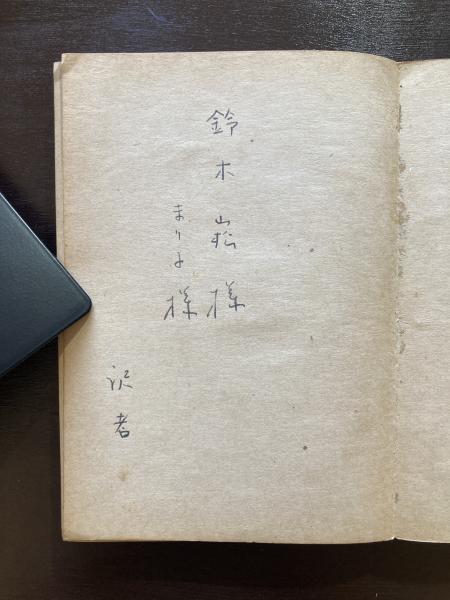 鈴木崧様
まり子様
訳者